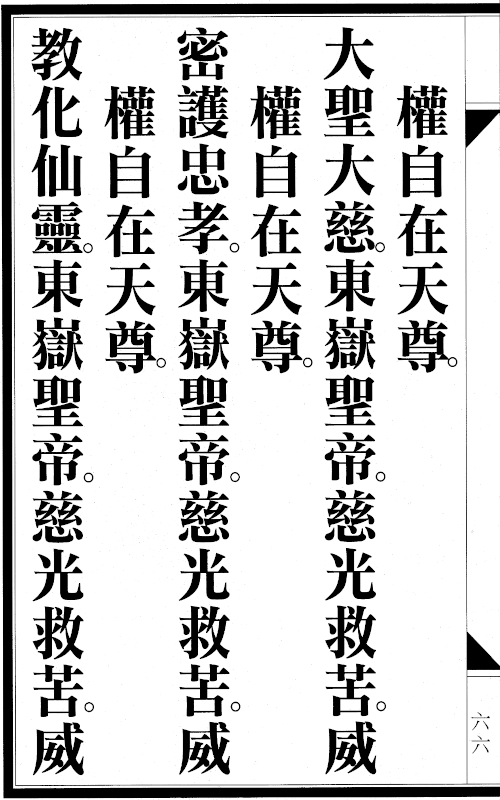 權自在天尊。
大聖大慈。東嶽聖帝。慈光救苦。威
權自在天尊。
密護忠孝。東嶽聖帝。慈光救苦。威
權自在天尊。
教化仙靈。東嶽聖帝。慈光救苦。威
六六